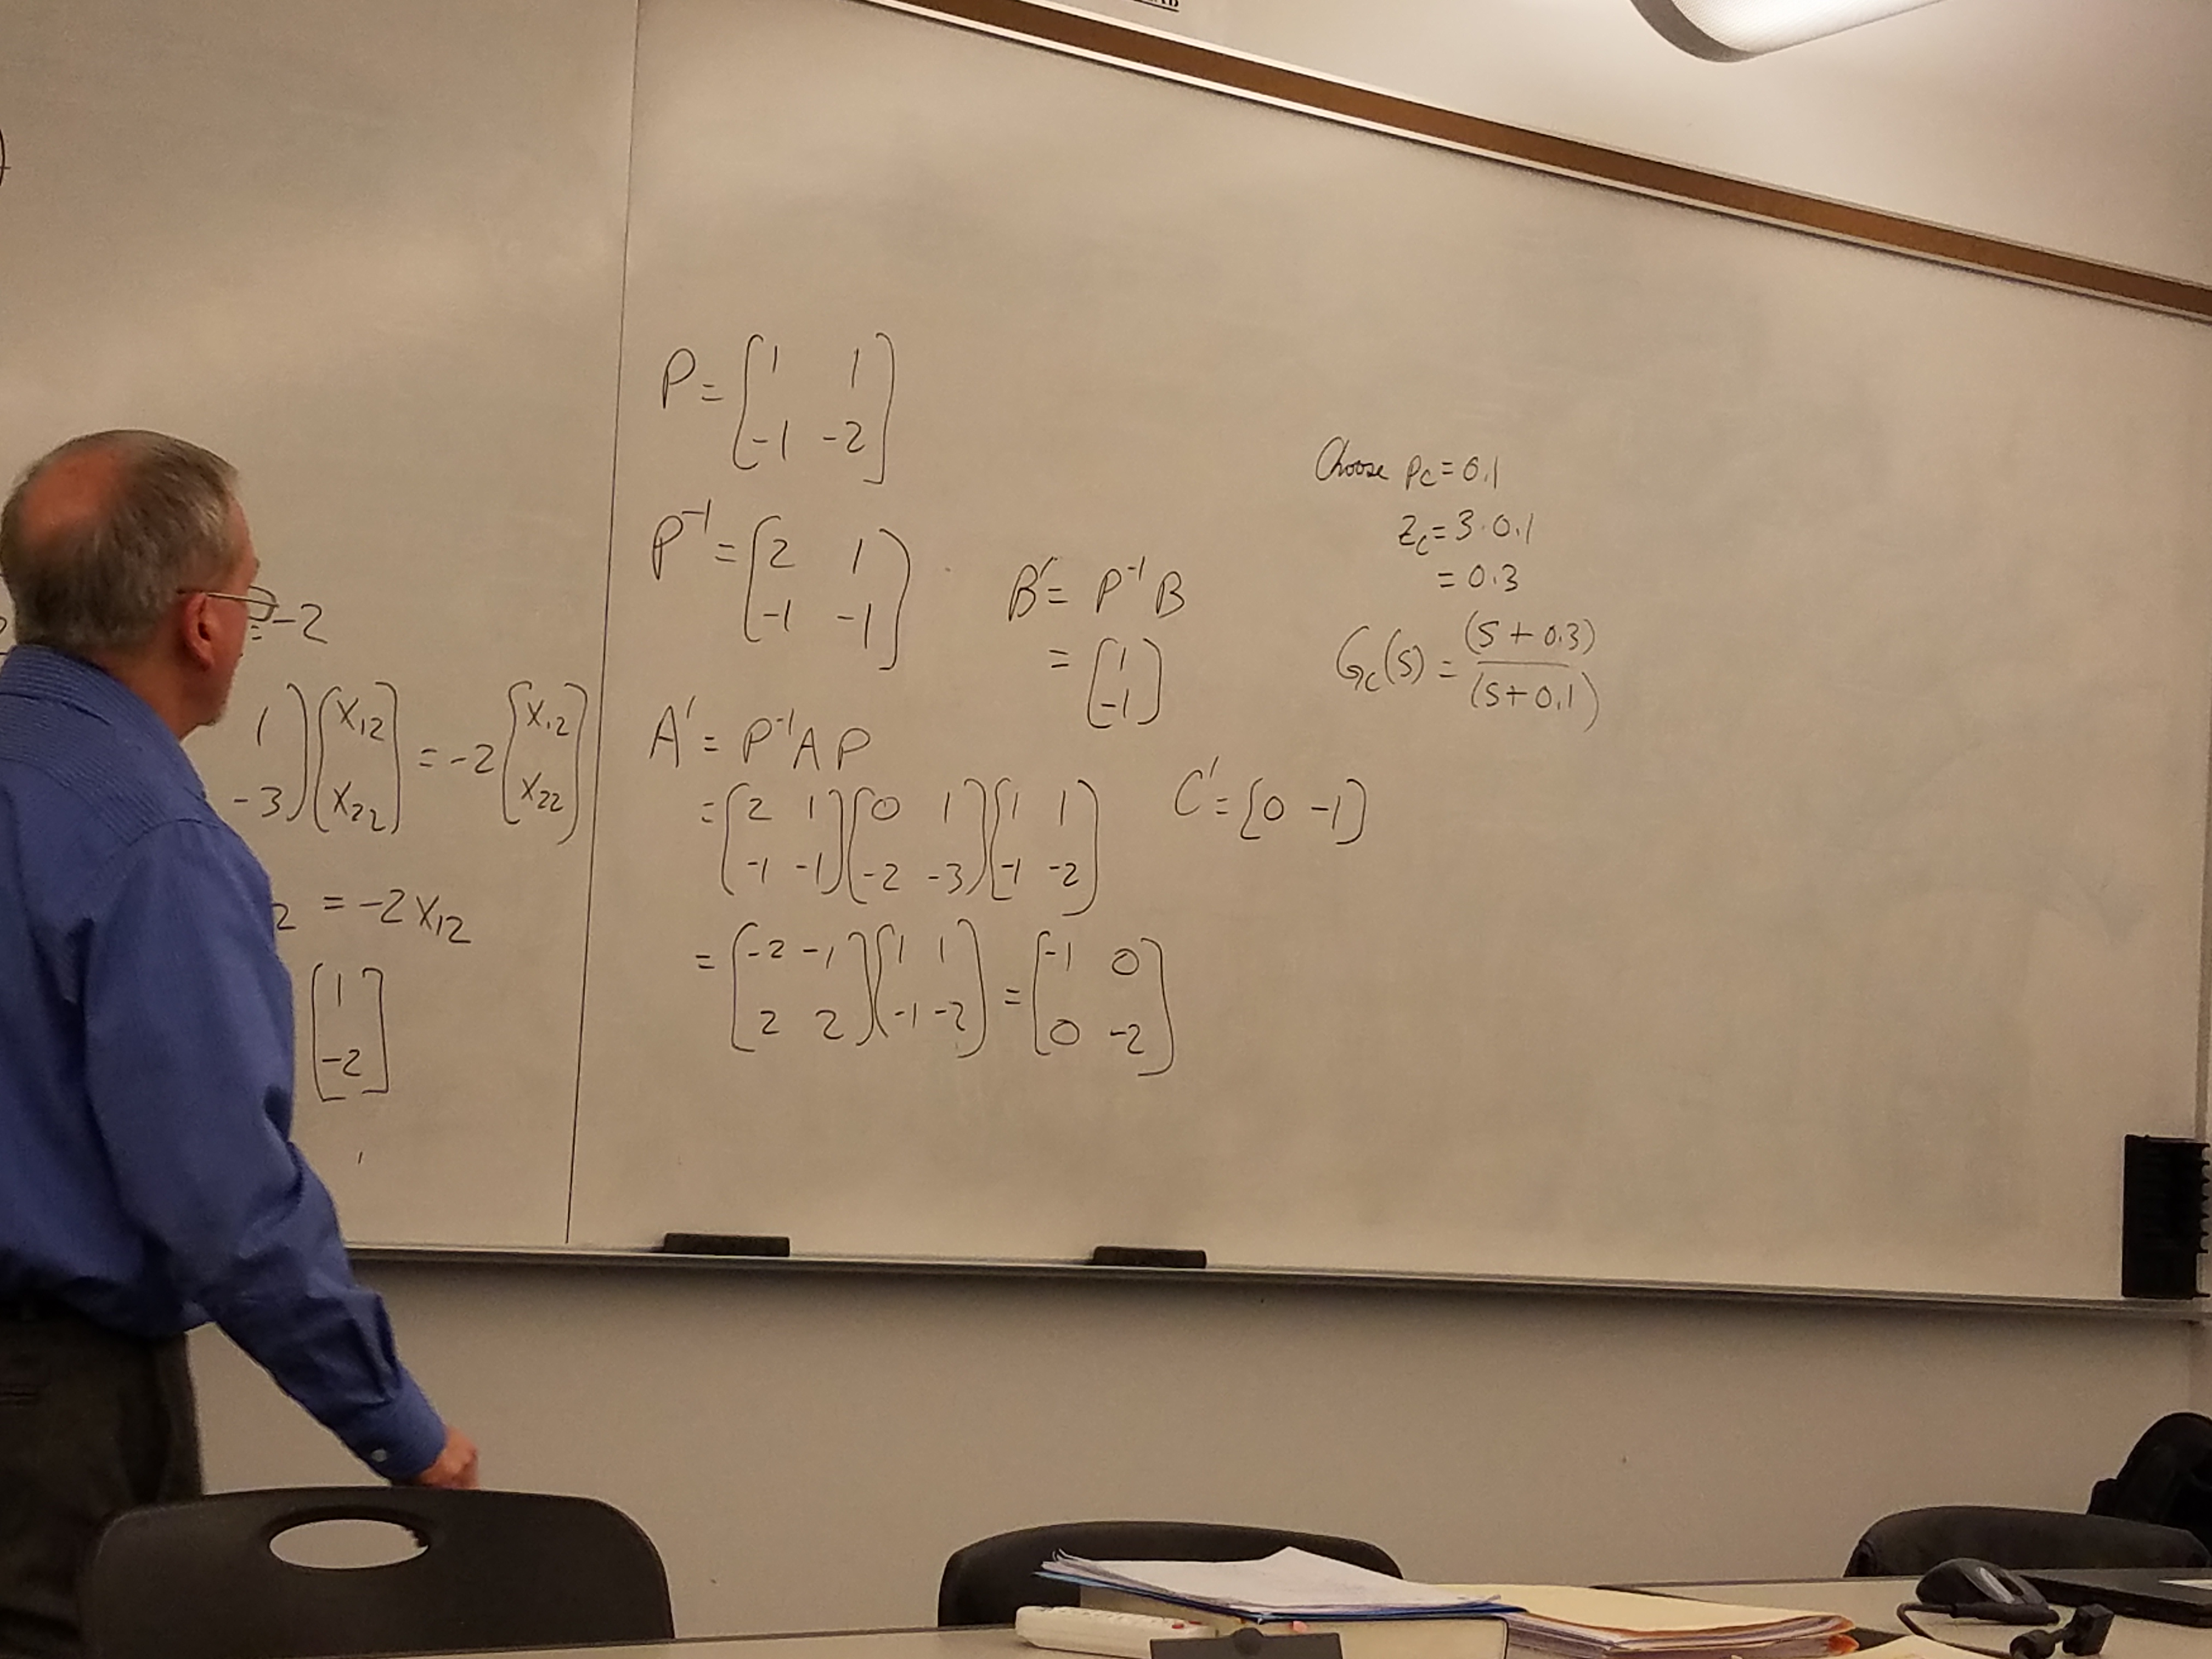 = -2
1
-3] [x12
x22] = -2 [x12
x22]
2 = -2 x12
[1
-2]
P = [1 1
-1 -2]
P⁻¹ = [2 1
-1 -1]
A' = P⁻¹ A P
= [2 1
-1 -1] [0 1
-2 -3] [1 1
-1 -2]
= [-2 -1
2 2] [1 1
-1 -2] = [-1 0
0 -2]
B' = P⁻¹ B
= [1
-1]
C' = [0 -1]
Choose pc = 0.1
zc = 3·0.1
= 0.3
Gc(s) = (s + 0.3)
(s + 0.1)